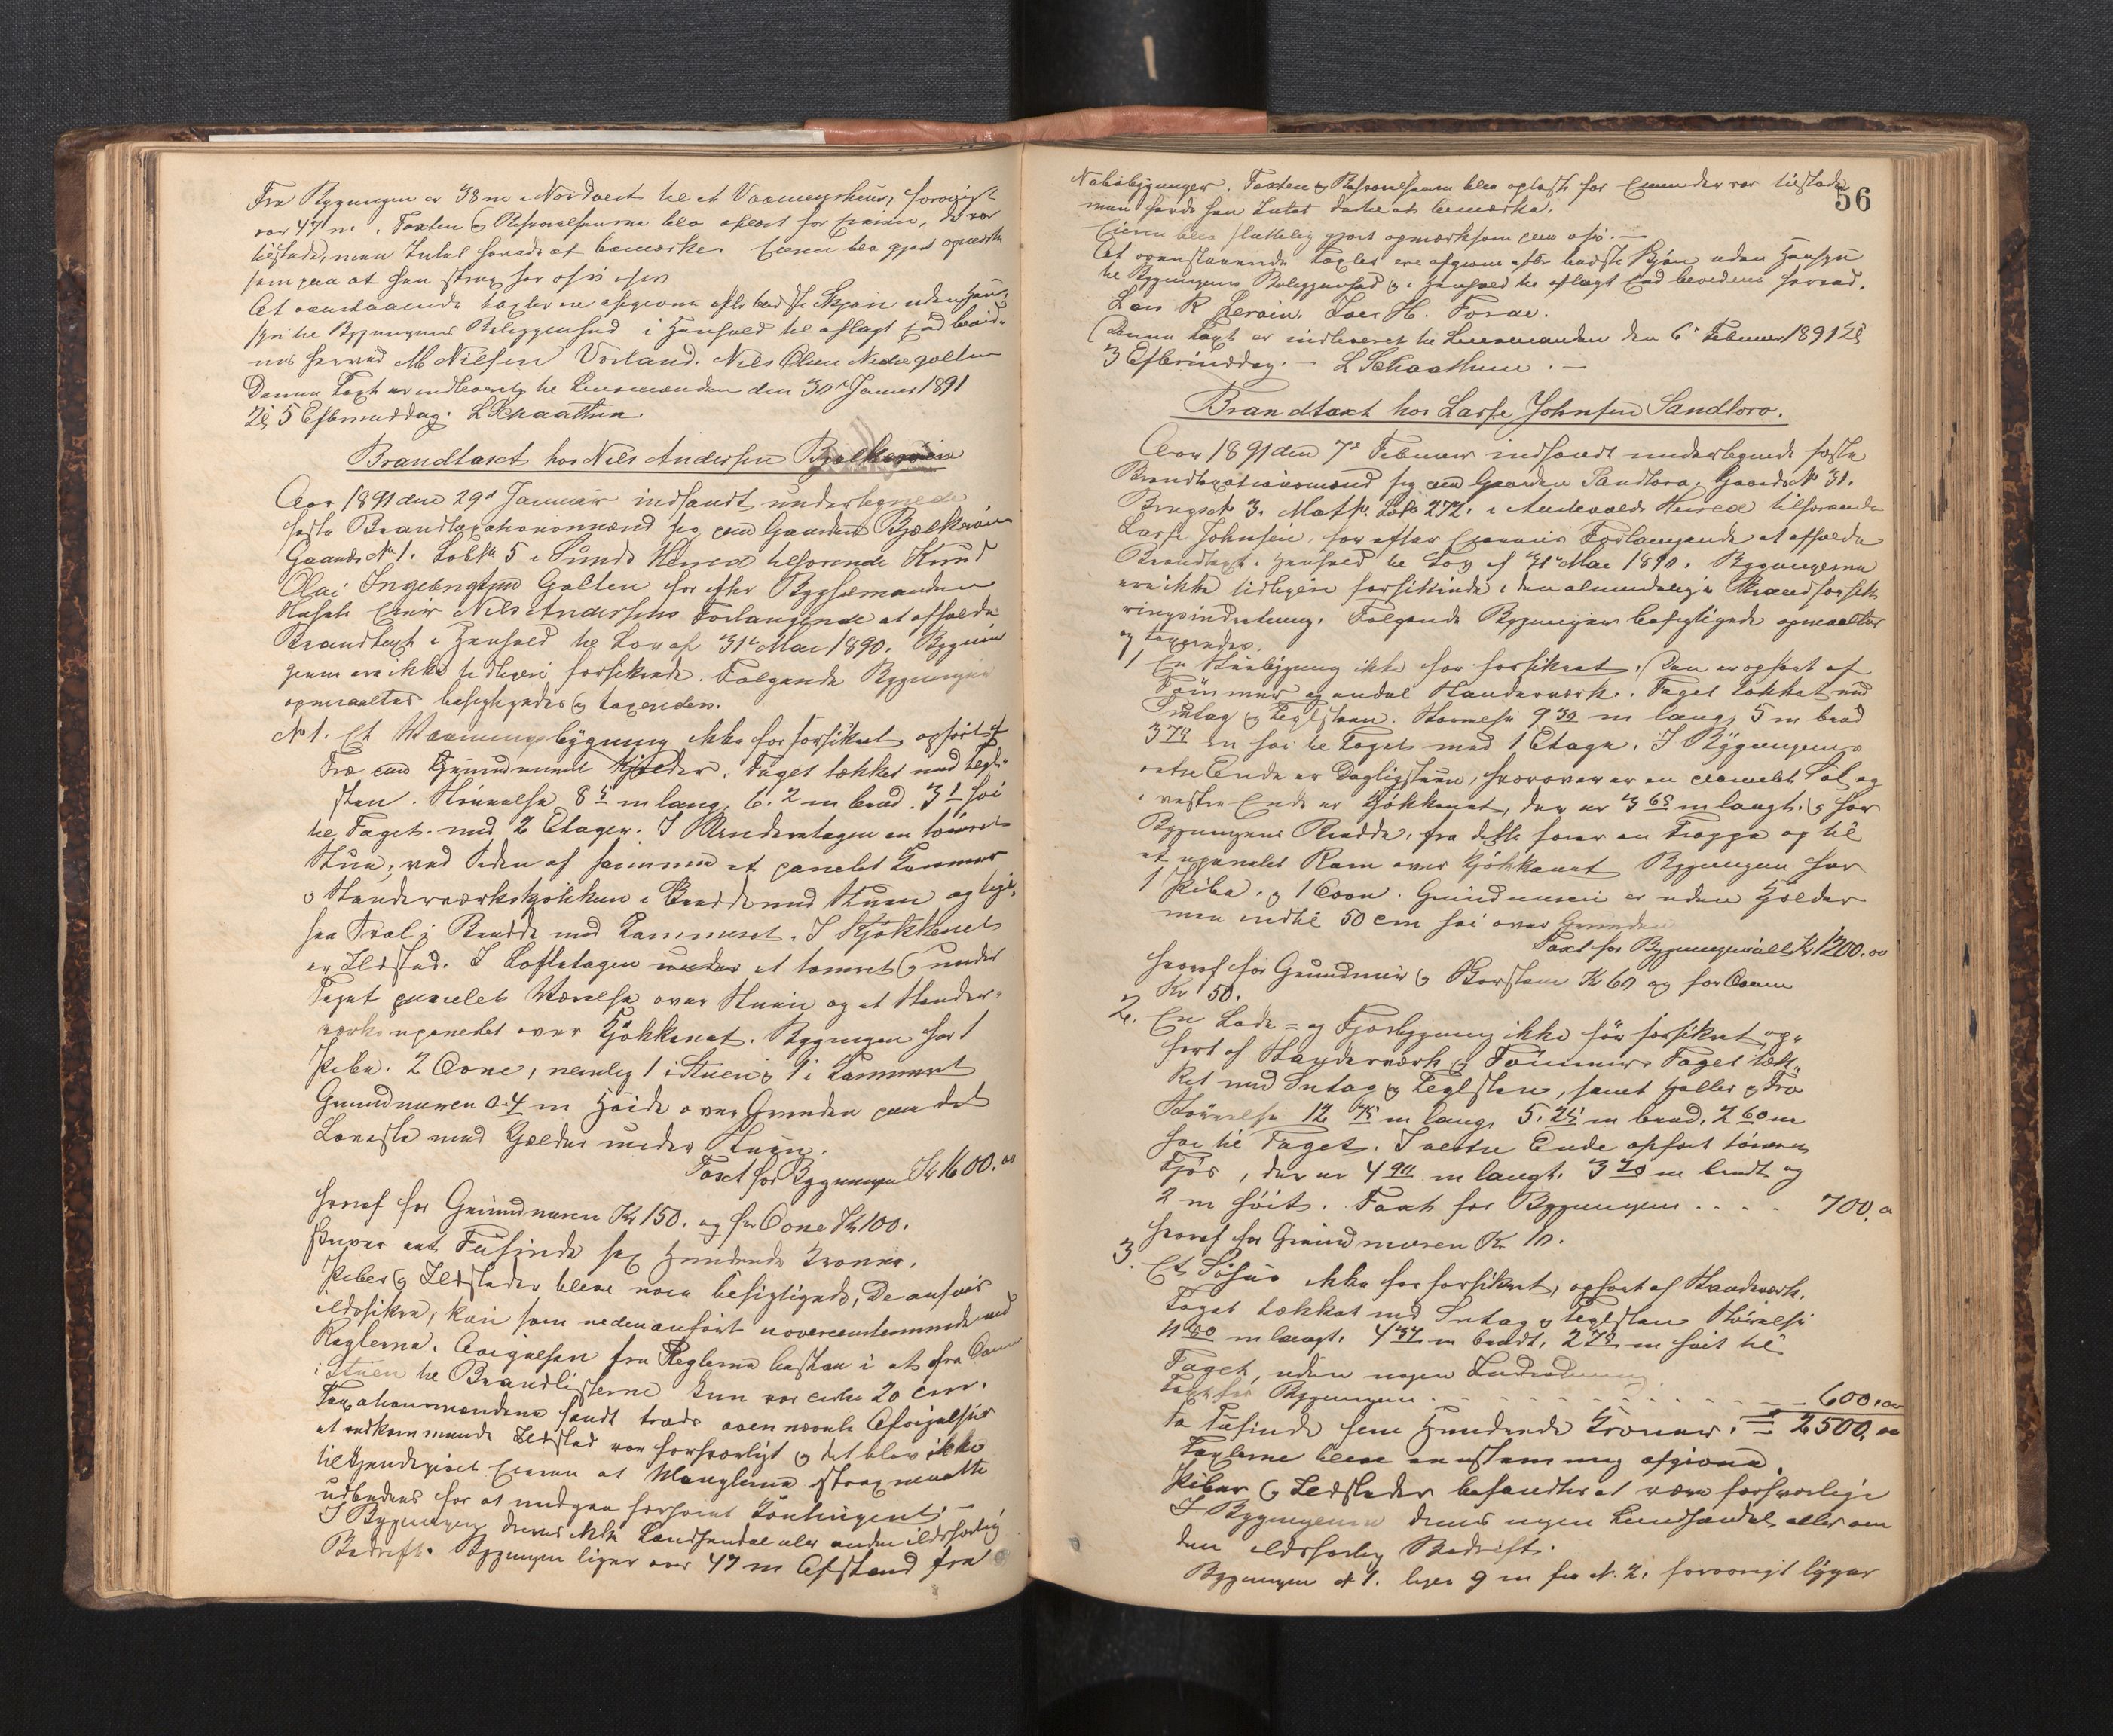 Fra Bygningen er 38 m i Nordvest til et Vaaningshus, forøvrigt
over 47 m. Taxten og Beskrivelserne blev oplæst for Eieren, der var
tilstede, men Intet havde at bemærke. Eieren blev gjort opmærk
som paa at han strax har
At ovenstaaende Taxter ere afgivne efter bedste Skjøn uden Hen-
syn til Bygningens Beliggenhed i Henhold til aflagt Eed bevid-
nes herved M Nilsen Vorland. Nils Olsen Nedregolten
Denne Taxt er indleveret til Lensmanden den 30te Januar 1891
Kl 5 Eftermiddag. L Schaathun
Brandtaxt hos Nils Andersen Bjelkerøen
Aar 1891 den 29de Januar indfandt undertegnede
faste Brandtaxationsmænd sig paa Gaarden Bjælkerøen
Gaards No 1. Løbe 5 i Sunds Herred tilhørende Knud
Olai Ingebrigtsen Golten for efter Bygselmanden
Husets Eier Nils Andersens Forlangende at afholde
Brandtaxt i Henhold til Lov af 31te Mai 1890. Bygnin
gerne ere ikke tidligere forsikrede. Følgende Bygninger
opmaaltes besigtigedes og taxeredes.
No 1. Et Vaaningsbygning ikke før forsikret opført af
Træ paa Grundmuret Kjælder. Taget tækket med Tegl-
sten. Størrelse 8 5 m lang, 6. 2 m bred. 3 1 høi
til Taget med 2 Etager. I Underetagen en tømret
Stue, ved Siden af samme et panelet Kammer
og Standerværkskjøkken i Bredde med Stuen og lige-
saa Sval i Bredde med Kammeret. I Kjøkkenet
er Ildsted. I Loftetagen et tømret og under
Taget panelet Værelse over Stuen og et Stander-
værks upanelet over Kjøkkenet. Bygningen har 1
Pibe. 2 Ovne, nemlig 1 i Stuen og 1 i Kammeret
Grundmuren 0.4 m Høide over Grunden paa det
Laveste med Kjælder under Stuen.
Taxt for Bygningen Kr 1600.00
hvoraf for Grundmuren Kr 150. og for Ovne Kr 100.
Skriver eet Tusinde sex Hundrede Kroner.
Piber og Ildsteder bleve nøie besigtigede, De ansees
ildsikre, kun som nedenanført uoverensstemmende med
Reglerne. Avigelsen fra Reglerne bestaar i at fra Ovnen
i Stuen til Brandlisterne kun var cirka 20 cm.
Taxationsmændene fandt trods ovennævnte Afvigelser
at vedkommende Ildsted var forsvarligt og det blev ikke
tilkjendegivet Eieren at Manglerne strax maatte
udbedres for at undgaa forhøiet Kontingent.
I Bygningen drives ikke Landhandel eller anden ildsfarlig
Bedrift. Bygningen ligger over 47 m Afstand fra
56
Nabobygninger. Taxten og Beskrivelserne blev oplæst for Eieren der var tilstede
men havde han Intet dertil at bemærke.
Eieren blev slutteligt gjort opmærksom paa
At ovenstaaende Taxter ere afgivne efter bedste Skjøn uden Hensyn
til Bygningens Beliggenhed og i Henhold til aflagt Eed bevidnes herved.
Lars R Lerøen. Lars H. Forde.
Denne Taxt er indleveret til Lensmanden den 6te Februar 1891 Kl
3 Eftermiddag. L Schaathun.
Brandtaxt hos Lasse Johnsen Sandtorv.
Aar 1891 den 7de Februar indfandt undertegnede faste
Brandtaxationsmænd sig paa Gaarden Sandtorv, Gaards No 31.
Brugs No 3. Matr. Løbe 272. i Austevolds Herred tilhørende
Lasse Johnsen, for efter Eierens Forlangende at afholde
Brandtaxt i Henhold til Lov af 31te Mai 1890. Bygningerne
ere ikke tidligere forsikrede i den almindelige Brandforsik
ringsindretning. Følgende Bygninger besigtigede opmaaltes
og taxeredes.
1 En Stuebygning ikke før forsikret. Den er opført af
Tømmer og endel Standerværk. Taget tækket med
Sutag og Teglsten. Størrelse 9 30 m lang, 5 m bred
3 70 m høi til Taget med 1 Etage. I Bygningens
østre Ende er Dagligstuen, hvorover er en panelet Sal og
i vestre Ende er Kjøkkenet, der er 3 65 m langt og har
Bygningens Bredde, fra dette fører en Trappe op til
et upanelet Rum over Kjøkkenet. Bygningen har
1 Pibe og 1 Ovn. Grundmuren er uden Kjælder
men indtil 50 cm høi over Grunden
Taxt for Bygningen alt Kr 1200.00
hvoraf for Grundmur og Skorsten Kr 60 og for Ovnen
Kr 50.
2. En Lade- og Fjøsbygning ikke før forsikret op-
ført af Standerværk og Tømmer. Taget tæk-
ket med Sutag og Teglsten, samt Heller og Træ
Størrelse 12 45 m lang, 5. 25 m bred, 2 60 m
høi til Taget. I østre Ende opført tømret
Fjøs, der er 4 90 m langt, 3 70 m bredt og
2 m høit. Taxt for Bygningen . . . . 700,00
hvoraf for Grundmuren Kr. 10.
3. Et Søhus ikke før forsikret, opført af Standerværk.
Taget tækket med Sutag og Teglsten Størrelse
11 80 m langt, 4 34 m bredt, 2 70 m høit til
Taget, uden nogen Indredning
Taxt for Bygningen . . . . . 600.00
To Tusinde fem Hundrede Kroner. = 2500.00
Taxterne bleve enstemmig afgivne.
Piber og Ildsteder befandtes at være forsvarlige
I Bygningerne drives ingen Landhandel eller an
den ildsfarlig Bedrift.
Bygningen No 1. ligger 9 m fra No. 2, forøvrigt ligger